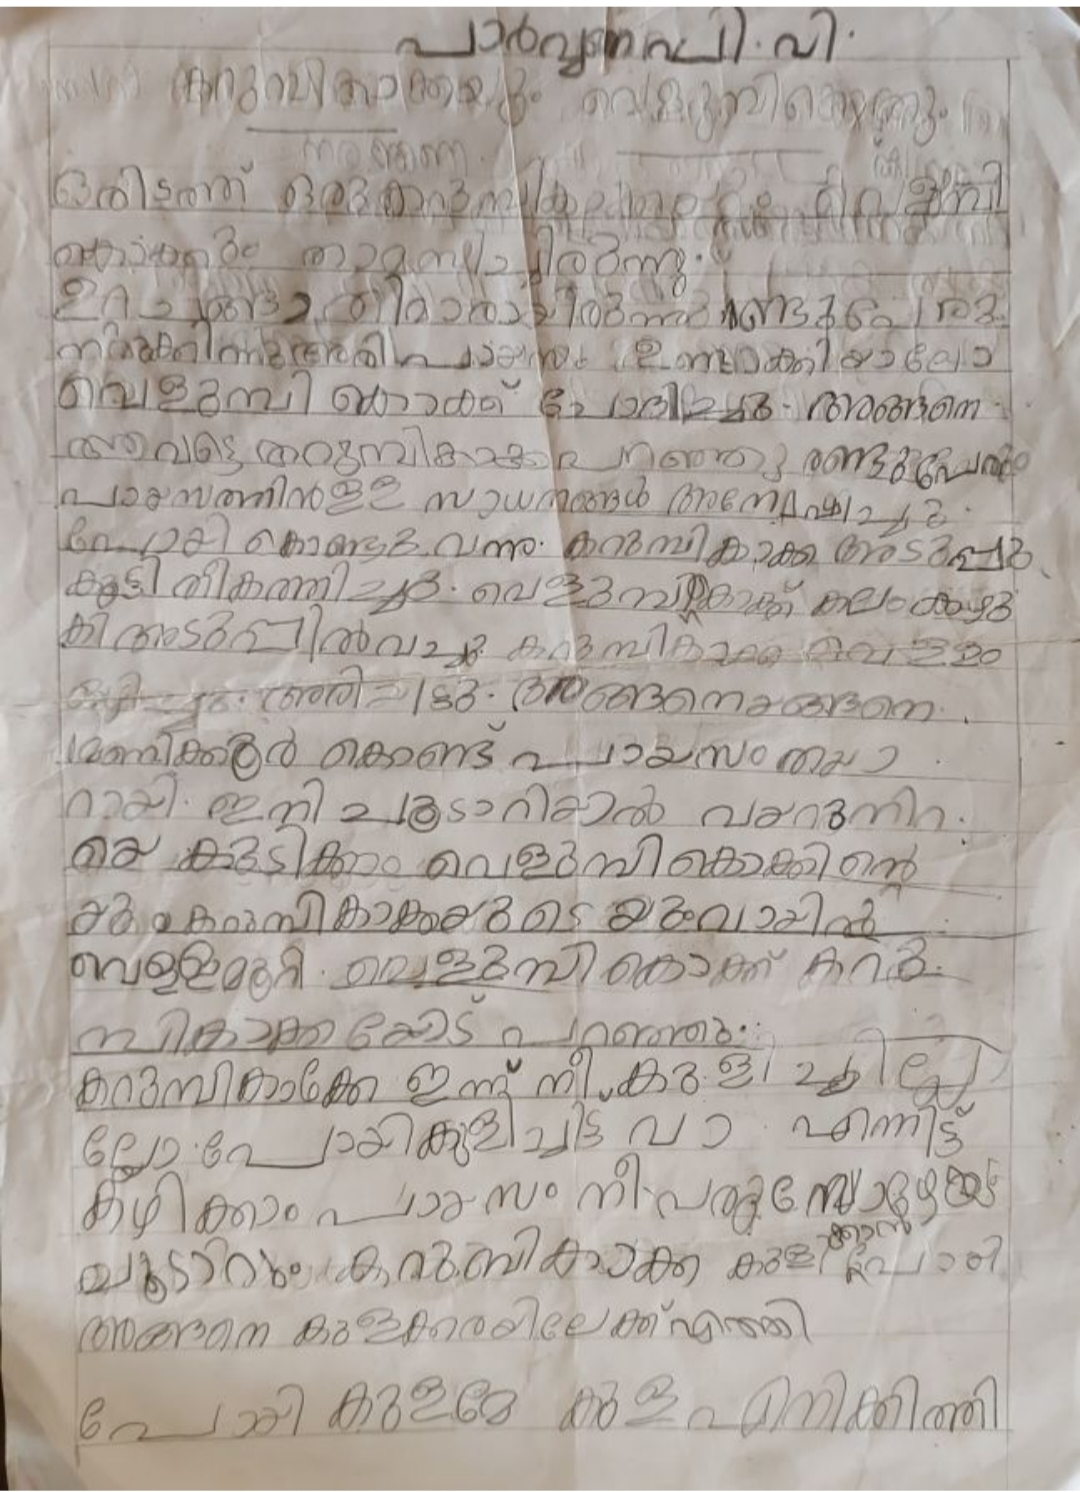 പാർവ്വണ പി. വി.
കറുമ്പികാക്കയും വെളുമ്പികൊക്കും
ഒരിടത്ത് ഒരു കറുമ്പികാക്കയും വെളുമ്പി
കൊക്കും താമസിച്ചിരുന്നു.
രണ്ടുപേരും
പായസം ഉണ്ടാക്കിയാലോ
വെളുമ്പി കൊക്ക് ചോദിച്ചു. അങ്ങനെ
കറുമ്പികാക്ക പറഞ്ഞു രണ്ടുപേരും
പായസത്തിൻള്ള സാധനങ്ങൾ അന്വേഷിച്ചു
പോയി കൊണ്ടു വന്നു. കറുമ്പികാക്ക അടുപ്പു
കൂട്ടി തികത്തിച്ചു. വെളുമ്പികൊക്ക് കലം കഴു
കി അടുപ്പിൽ വച്ചു കറുമ്പികാക്ക വെള്ളം
ഒഴിച്ചു. അരി ഇട്ടു. അങ്ങനെയങ്ങനെ.
മണിക്കൂർ കൊണ്ട് പായസം തയാ
റായി. ഇനി ചൂടാറിയാൽ വയറുനിറ.
യെ കുടിക്കാം വെളുമ്പി കൊക്കിന്റെ
യും കറുമ്പികാക്കയുടെ യും വായിൽ
വെള്ളമൂറി. വെളുമ്പി കൊക്ക് കറു.
മ്പികാക്കയോട് പറഞ്ഞു:
കറുമ്പികാക്കേ ഇന്ന് നീ കുളിച്ചില്ല
ല്ലോ. പോയികുളിച്ചിട്ട് വാ എന്നിട്ട്
കഴിക്കാം പായസം നീ വരുമ്പോഴേക്കും
ചൂടാറും കറുമ്പികാക്ക കുളിക്കാൻ പോയി
അങ്ങനെ കുളക്കരയിലേക്ക് എത്തി
പോയി കുളമേ കുള എനിക്കിത്തി